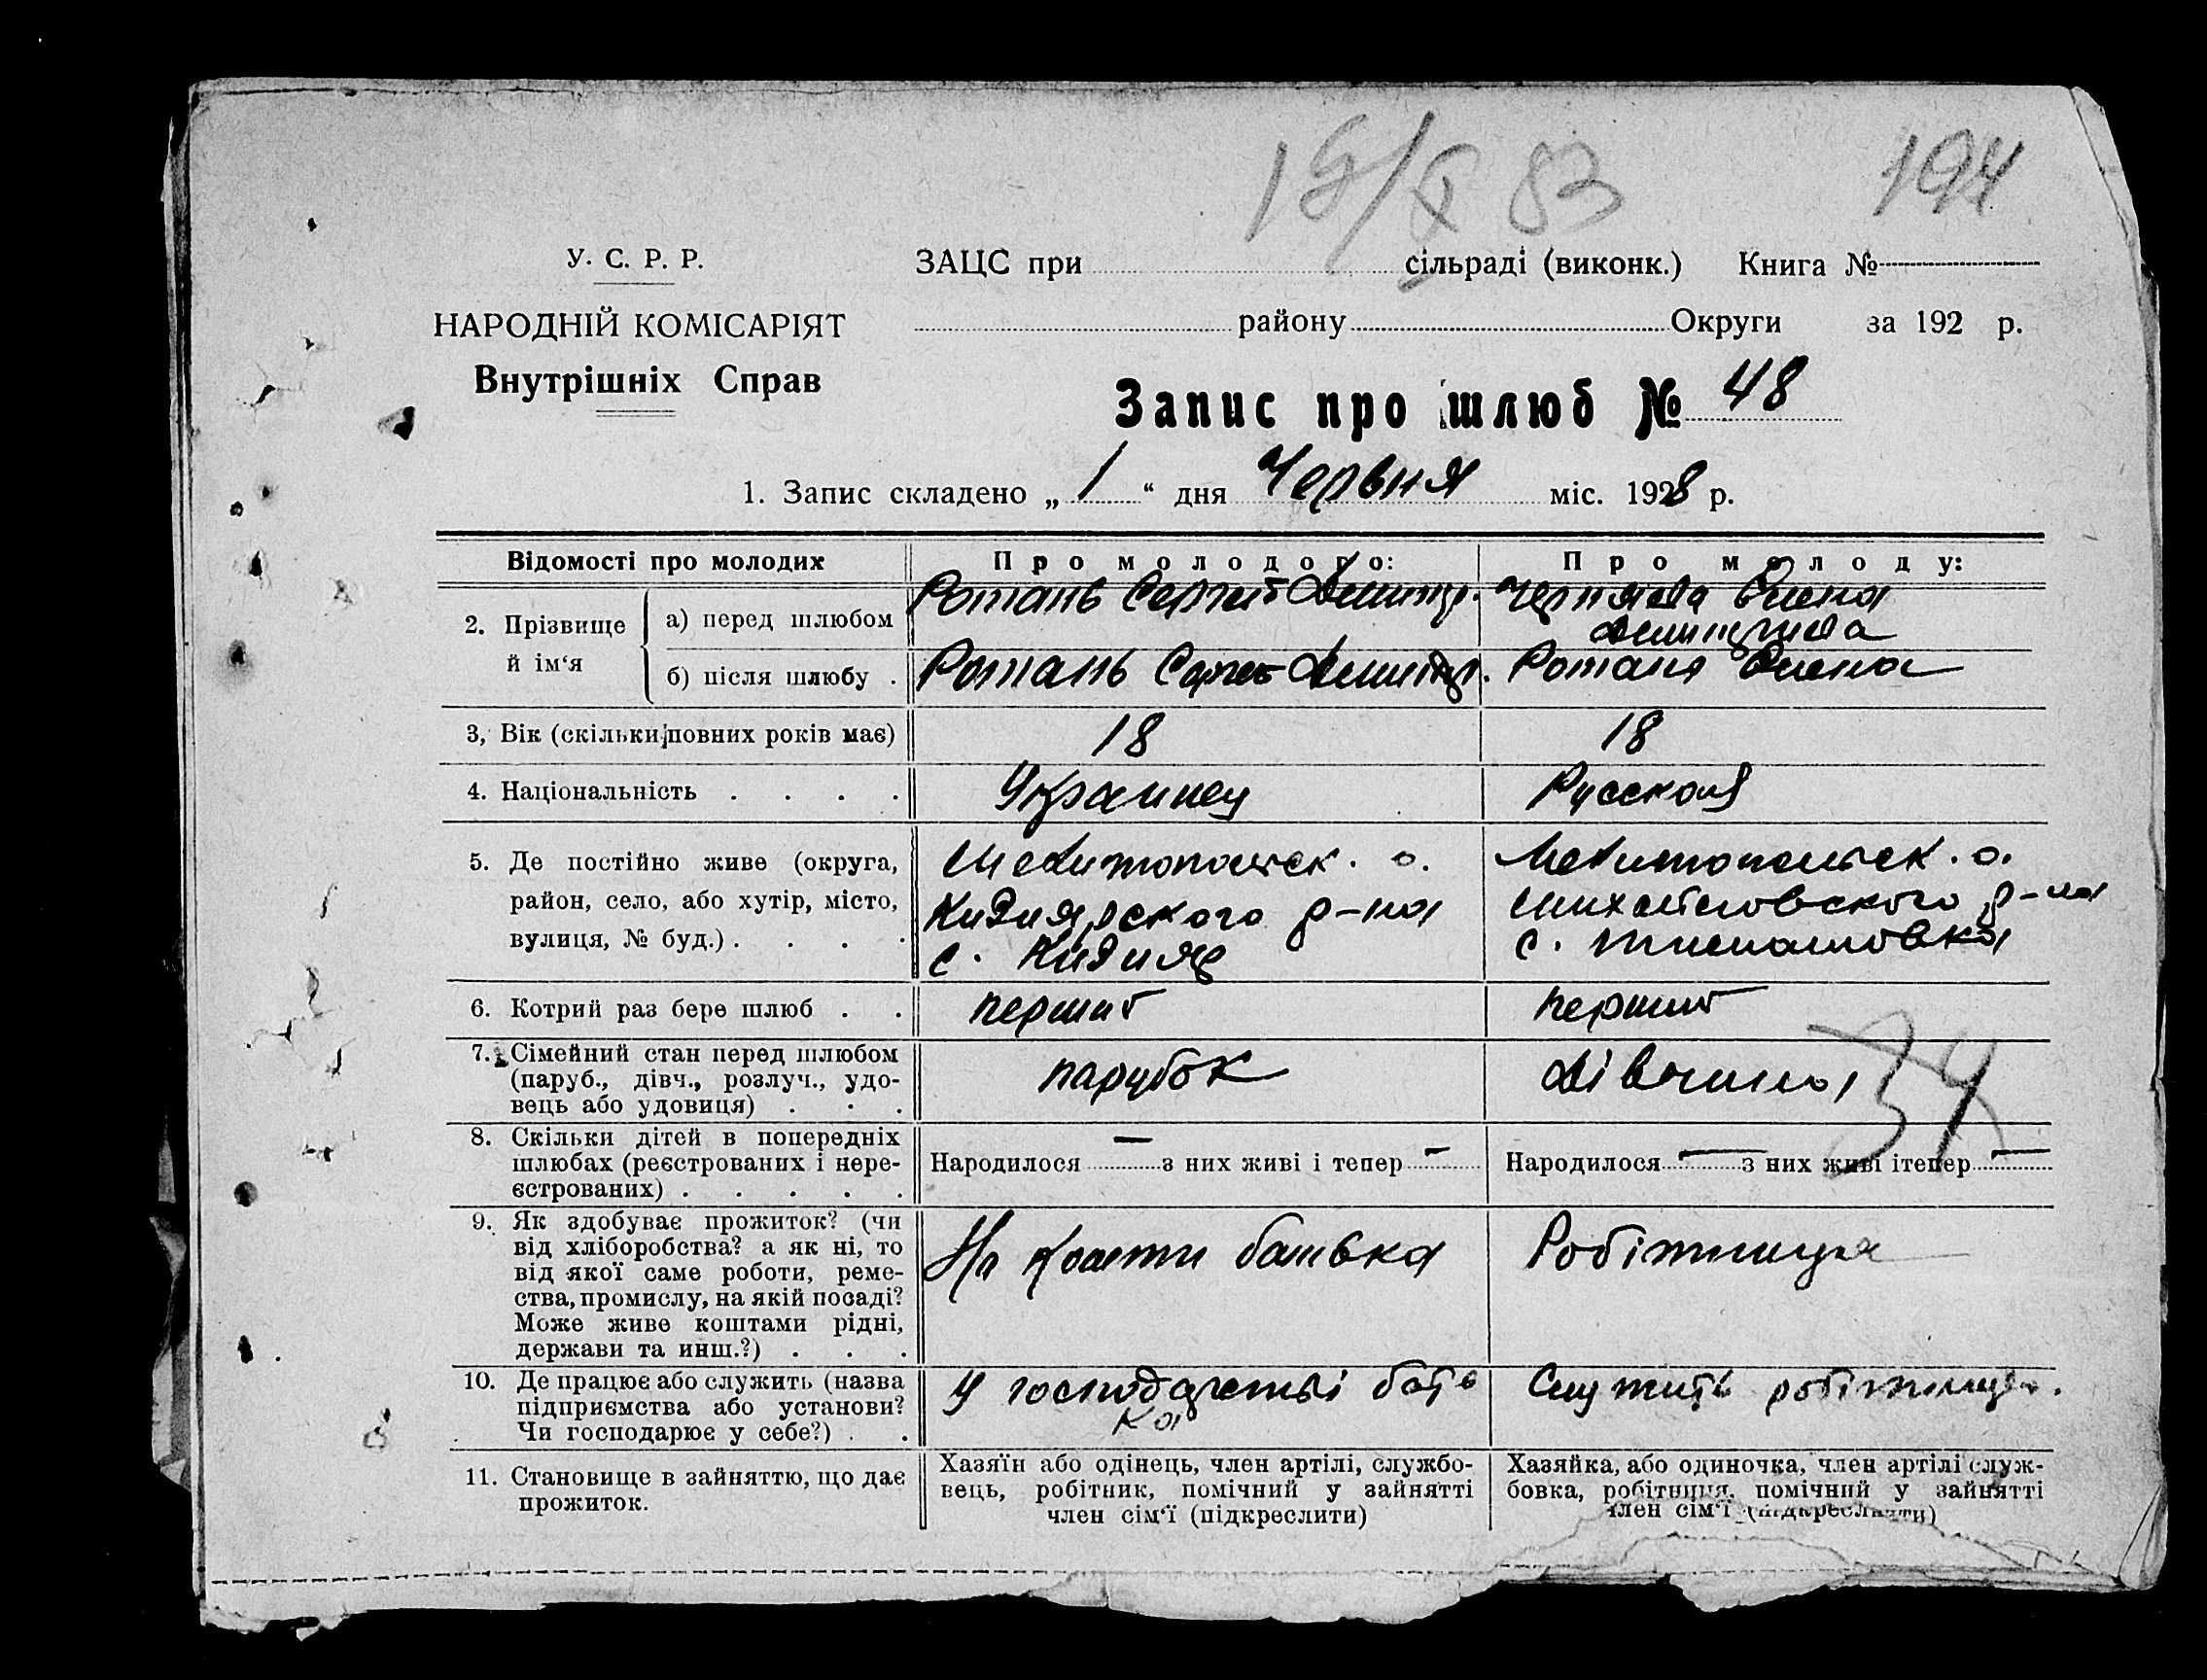 194
У. С. Р. Р.
НАРОДНІЙ КОМІСАРІЯТ
Внутрішніх Справ
ЗАЦС при сільраді (виконк.) Книга №
району Округи за 192 р.
Запис про шлюб № 48
1. Запис складено „ 1 “ дня Червня міс. 1928 р.
Відомості про молодих Про молодого: Про молоду:
2. Прізвище й ім‘я
а) перед шлюбом Ротань Сергей Дмитр. Чернява Елена
б) після шлюбу . Ротань Сергей Дмитр. Ротань Елена
3, Вік (скільки повних років має) 18 18
4. Національність . . . . Украинец Русская
5. Де постійно живе (округа, Мелитопольск. о. Мелитопольск. о.
район, село, або хутір, місто, Кизиярского р-на Михайловского р-на
вулиця, № буд.) . . . . с. Кизияр с. Тимашовка
6. Котрий раз бере шлюб . . перший перший
7. Сімейний стан перед шлюбом
(паруб., дівч., розлуч., удо-
вець або удовиця) . . . парубок Дівчина
34
8. Скільки дітей в попередніх
шлюбах (реєстрованих і нере-
єстрованих) . . . . .
Народилося — з них живі і тепер —
Народилося — з них живі ітепер —
9. Як здобуває прожиток? (чи
від хліборобства? а як ні, то
від якої саме роботи, реме-
ства, промислу, на якій посаді?
Може живе коштами рідні,
держави та инш.?) . . .
На кошти батька
Робітниця
10. Де працює або служить (назва
підприємства або установи?
Чи господарює у себе?) . .
У господарстві бать
ка
Служить робітниця.
11. Становище в зайняттю, що дає
прожиток.
Хазяїн або одінець, член артілі, службо-
вець, робітник, помічний у зайнятті
член сім‘ї (підкреслити)
Хазяйка, або одиночка, член артілі служ-
бовка, робітниця, помічний у зайнятті
член сім‘ї (підкреслити)